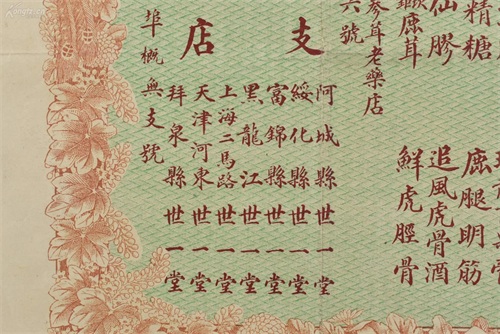 精糖
鮮虎脛骨
仙膠
追風虎骨酒
鹿茸
鹿腿明筋
參茸老藥店
六號
支店
阿城縣世一堂
綏化縣世一堂
富錦縣世一堂
黑龍江世一堂
上海二馬路世一堂
天津河東世一堂
拜泉縣世一堂
埠概無支號